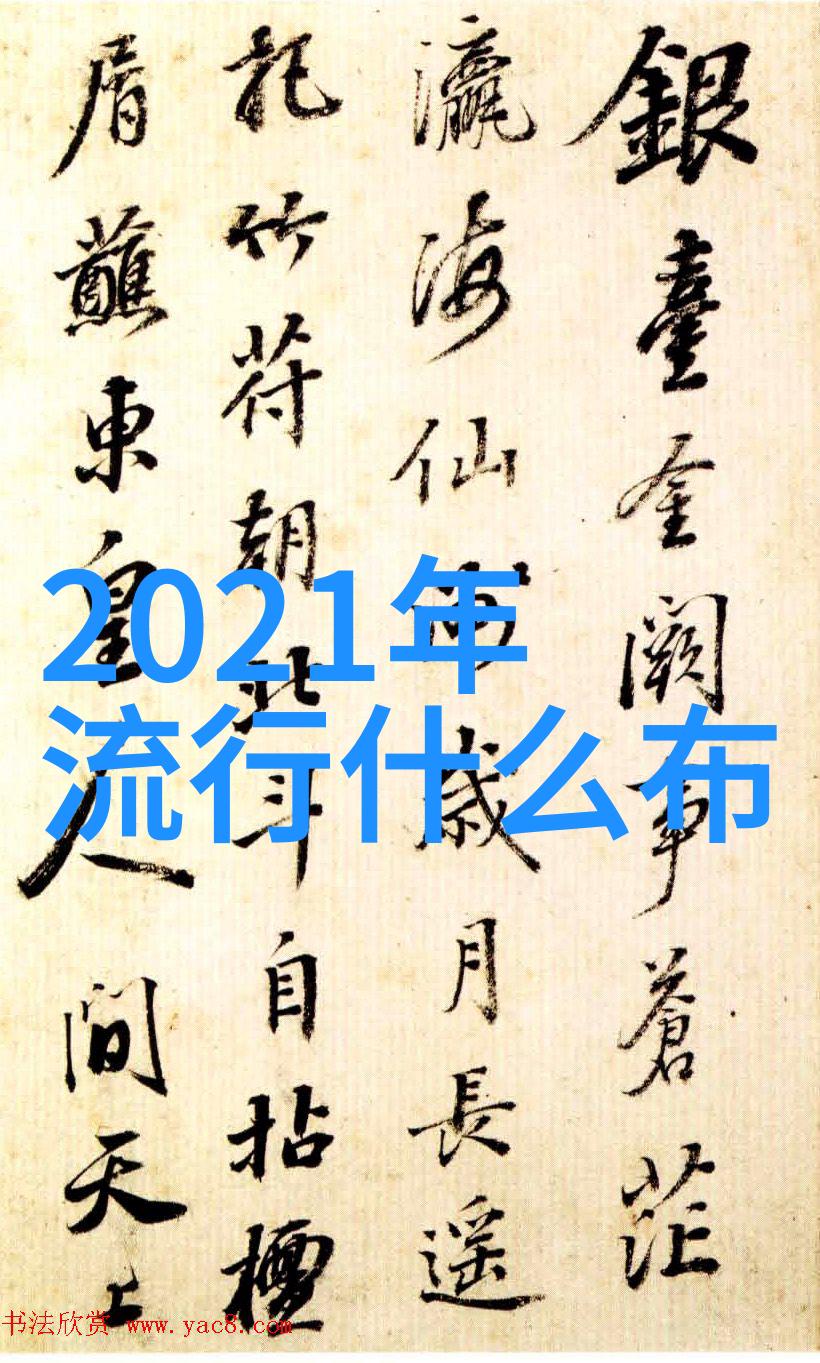 銀臺金闕事蒼茫
瀛海仙
歲月長遥
託竹符朝北斗自拈檀
屑蘸東皇人間天上
2021年
流行什么布
书法欣赏 www.yac8.com